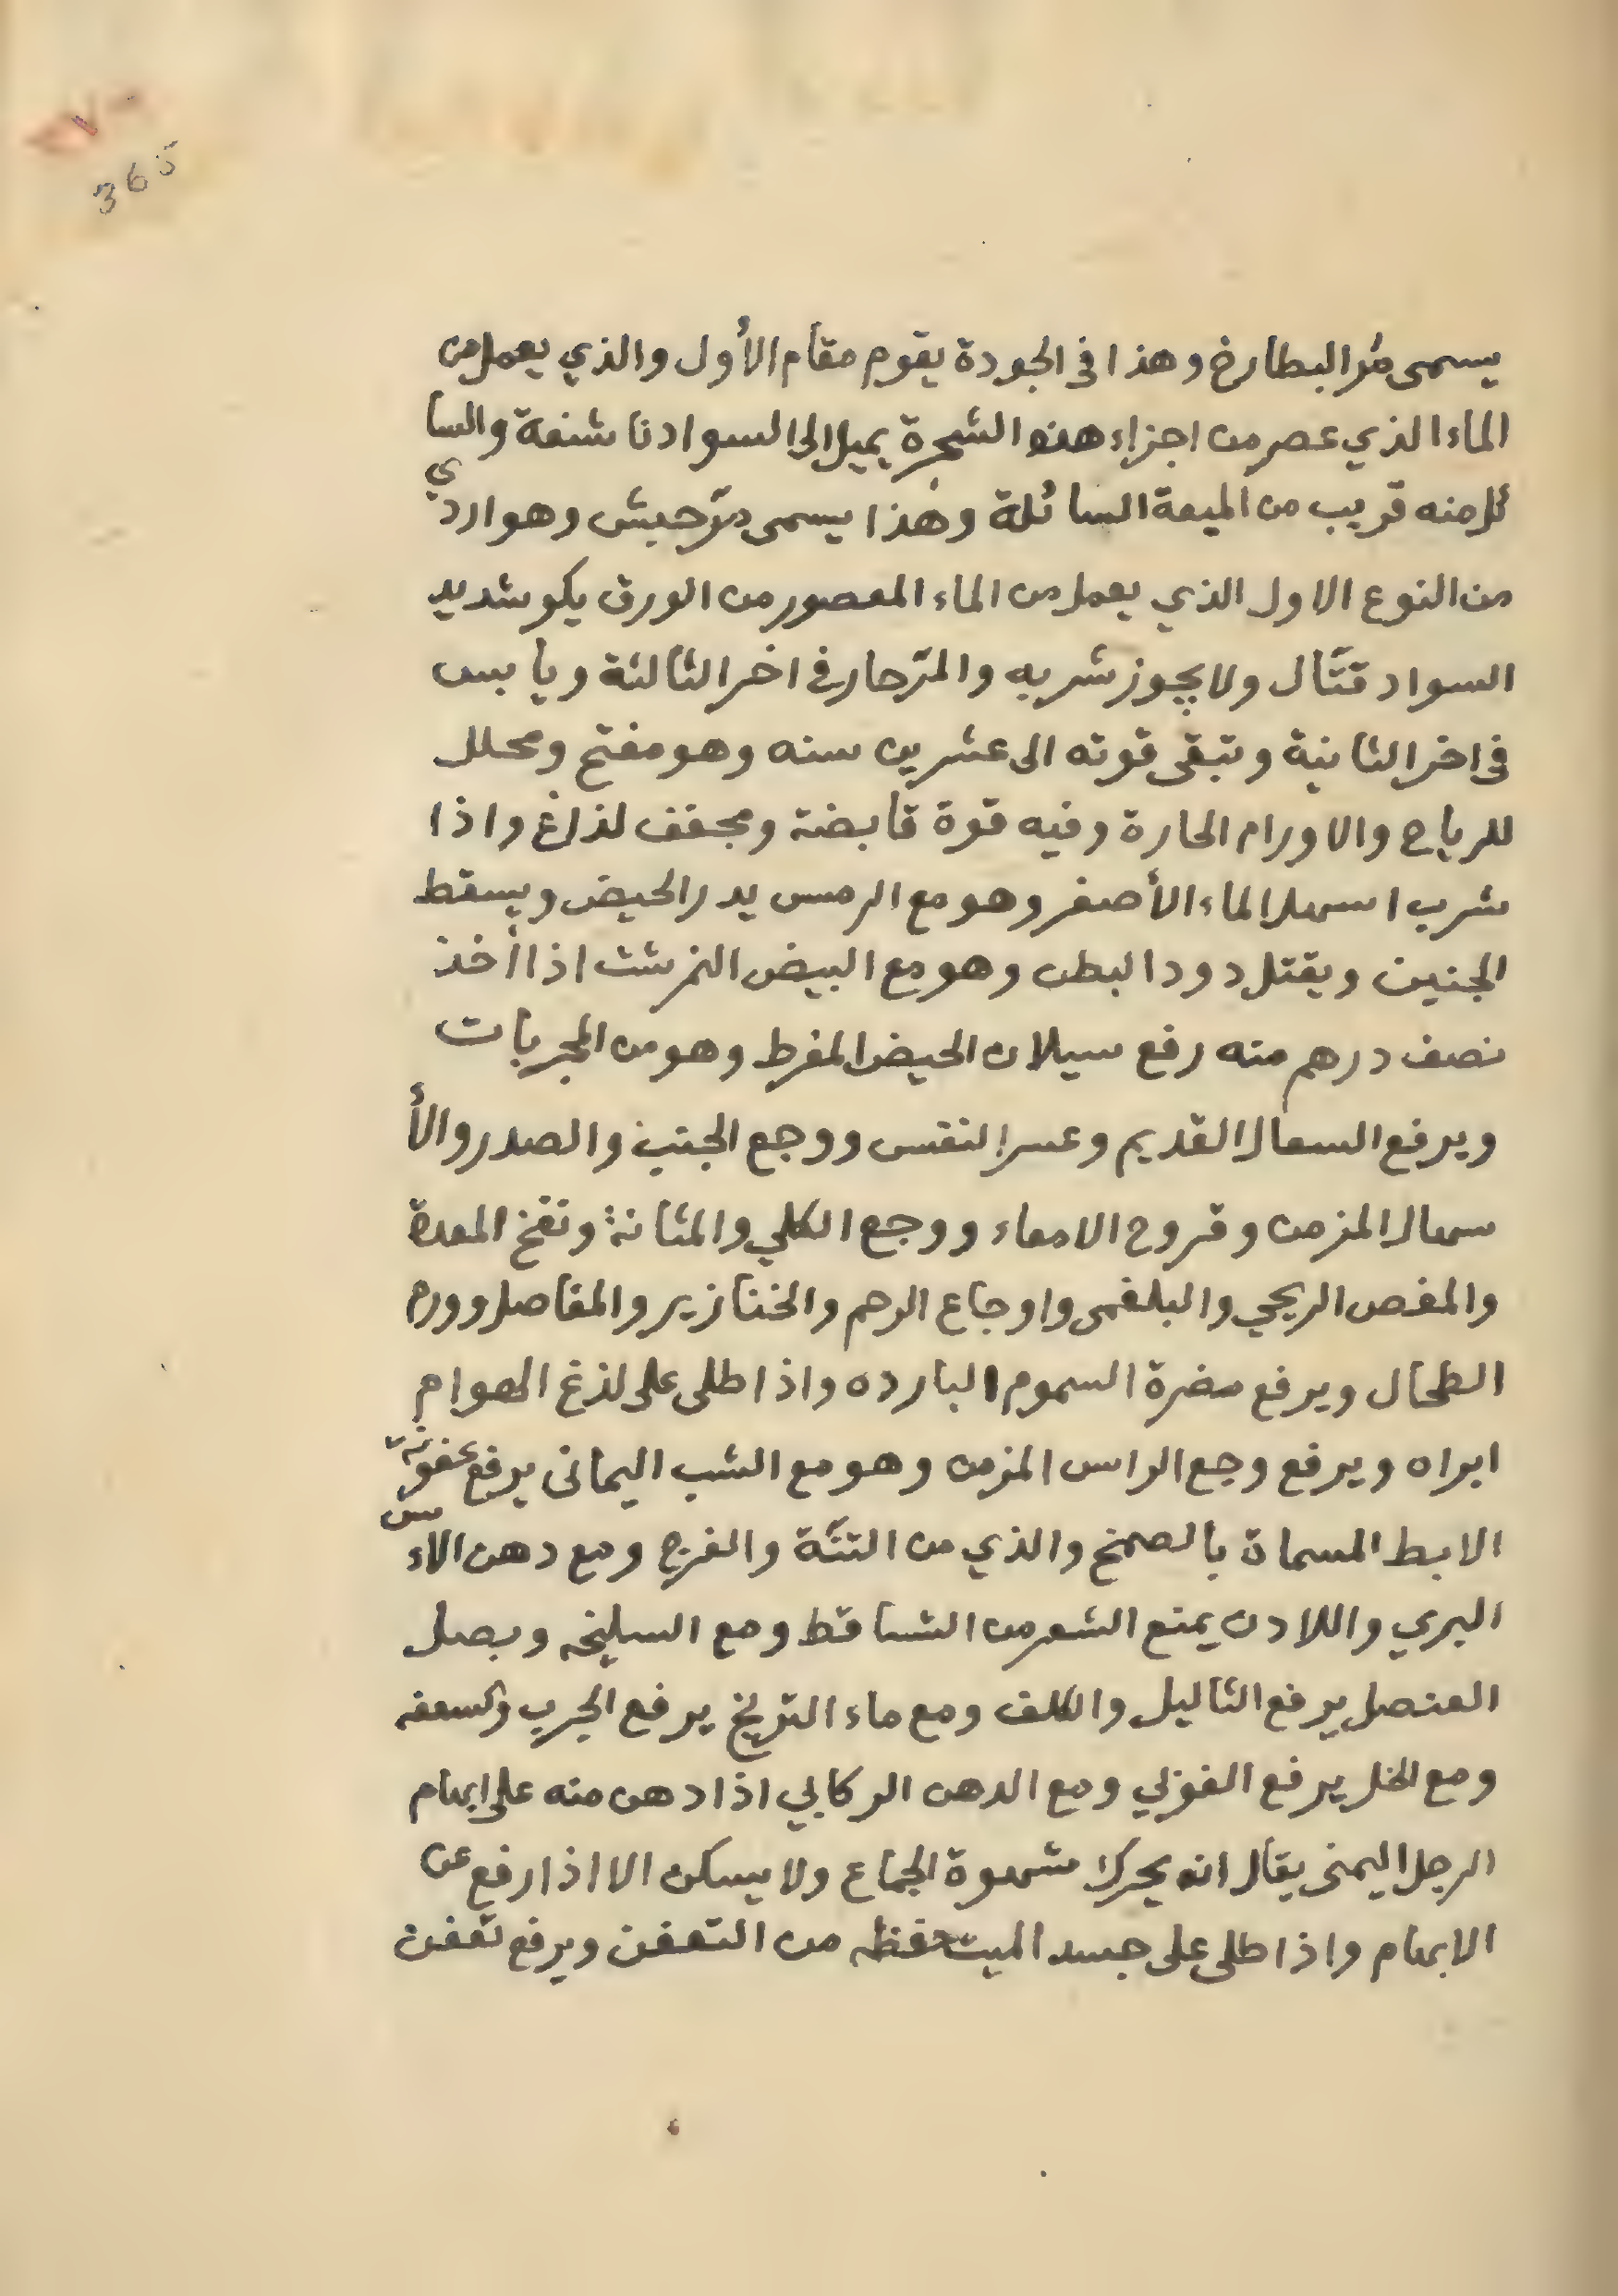 365
يسمى مرّ البطارخ وهذا فى الجودة يقوم مقام الأول والذي يعمل من
الماء الذي عصر من اجزاء هذه الشجرة يميل الى السواد ناشنعة والسا
ئل منه قريب من الميعة السائلة وهذا يسمى مرّ حبش وهو اردي
من النوع الاول الذي يعمل من الماء المعصور من الورق يكو شديد
السواد قتّال ولا يجوز شربه والمرّ حار في اخر الثالثة ويابس
فى اخر الثانية وتبقى قوته الى عشرين سنه وهو مفتح ومحلل
للرياح والاورام الحارة وفيه قوة قابضة ومجفف لذاغ واذا
شرب اسهل الماء الأصفر وهو مع الرمس يدر الحيض ويسقط
الجنين ويقتل دود البطن وهو مع البيض النمرشت اذا أخذ
نصف درهم منه رفع سيلان الحيض المفرط وهو من المجربات
ويرفع السعال القديم وعسر النفس ووجع الجنب والصدر والأ
سهال المزمن وقروح الامعاء ووجع الكلي والمثانة ونفخ المعدة
والمغص الريحي والبلغمى واوجاع الرحم والخنازير والمفاصل وورم
الطحال ويرفع مضرة السموم البارده واذا طلى على لذغ الهوام
ابراه ويرفع وجع الراس المزمن وهو مع الشب اليمانى يرفع عفونة
الابط المسماة بالصمخ والذي من التنّة والفرج ومع دهن الاءس
البري واللادن يمنع الشعر من التساقط ومع السليخه وبصل
العنصل يرفع الثاليل والكلف ومع ماء الترنج يرفع الجرب والسعفه
ومع الخل يرفع القوبي ومع الدهن الركابي اذا دهن منه على ابهام
الرجل اليمنى يقال انه يحرك شهوة الجماع ولا يسكن الا اذا رفع عن
الابهام واذا طلى على جسد الميت حفظه من التعفن ويرفع تعفن